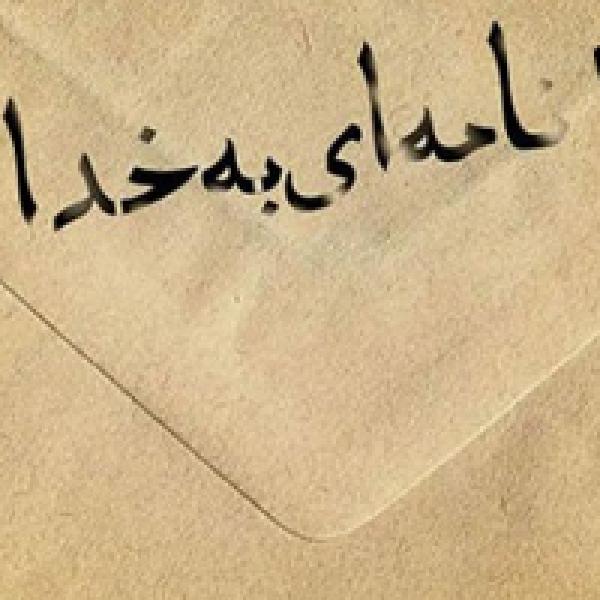 نامه‌ای به خدا